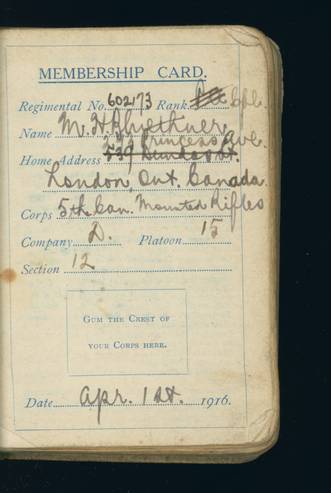 MEMBERSHIP CARD.
Regimental No. 602173 Rank. Cpl.
Name M. H. Bluethner
Princess Ave.
Home Address 539 Dundas St.
London, Ont. Canada
Corps 5th Can. Mounted Rifles
Company D. Platoon 15
Section 12
GUM THE CREST OF
YOUR CORPS HERE.
Date Apr. 1st. 1916.